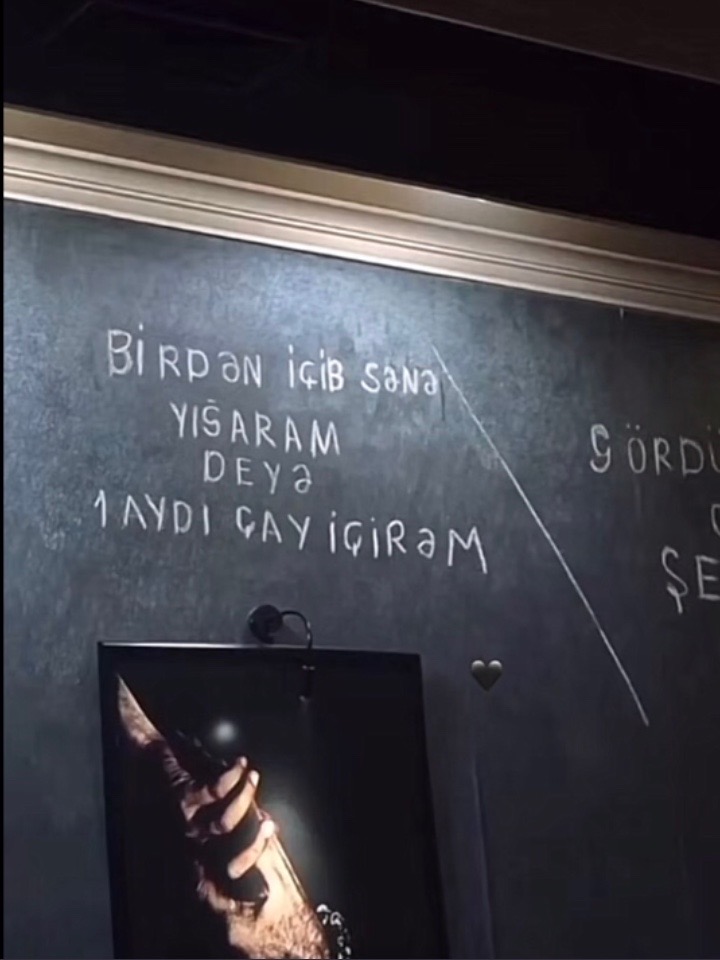 BİRDƏN İÇİB SƏNƏ
YIĞARAM
DEYƏ
1 AYDI ÇAY İÇİRƏM